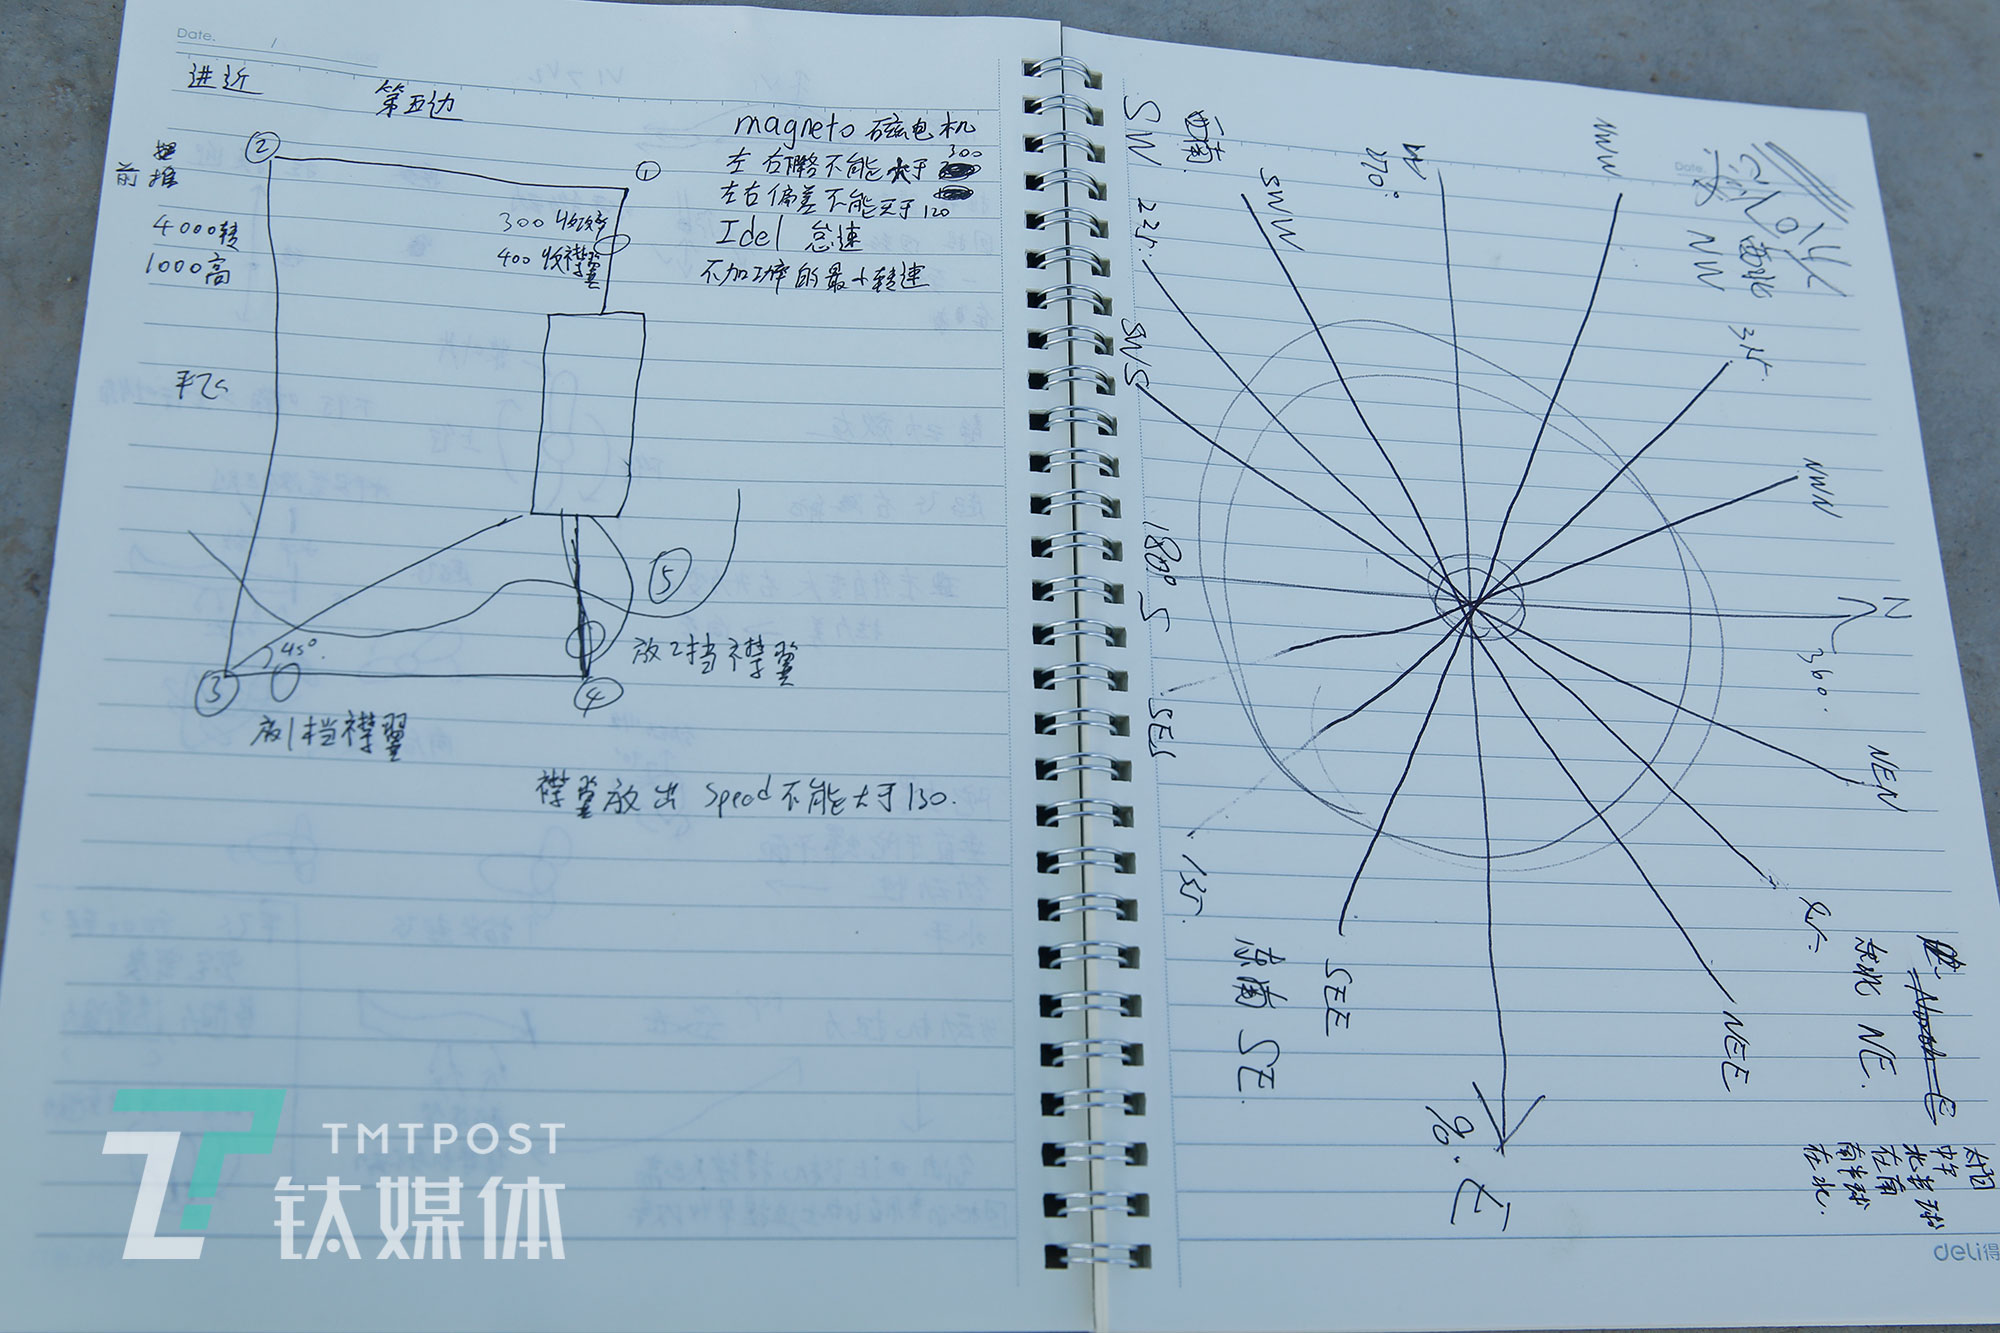 Date.
进近
第五边
magneto 磁电机
左右 不能大于 300
左右偏差不能大于 120
Idel 怠速
不加功率的最小转速
②
①
前推
4000转
1000高
300 收
400 收襟翼
平飞
⑤
45°
③
④
放2挡襟翼
放1挡襟翼
襟翼放出 Speed 不能大于 130.
TMTPOST
钛媒体
Date.
西北
NW
315.
NWW
270°
SWW
西南
SW
225.
SWS
NWN
N
360.
180° S
SES
135.
东南 SE.
SEE
90. E
NEE
NEN
东北 NE.
北半球
在南
南半球
在北.
deli得